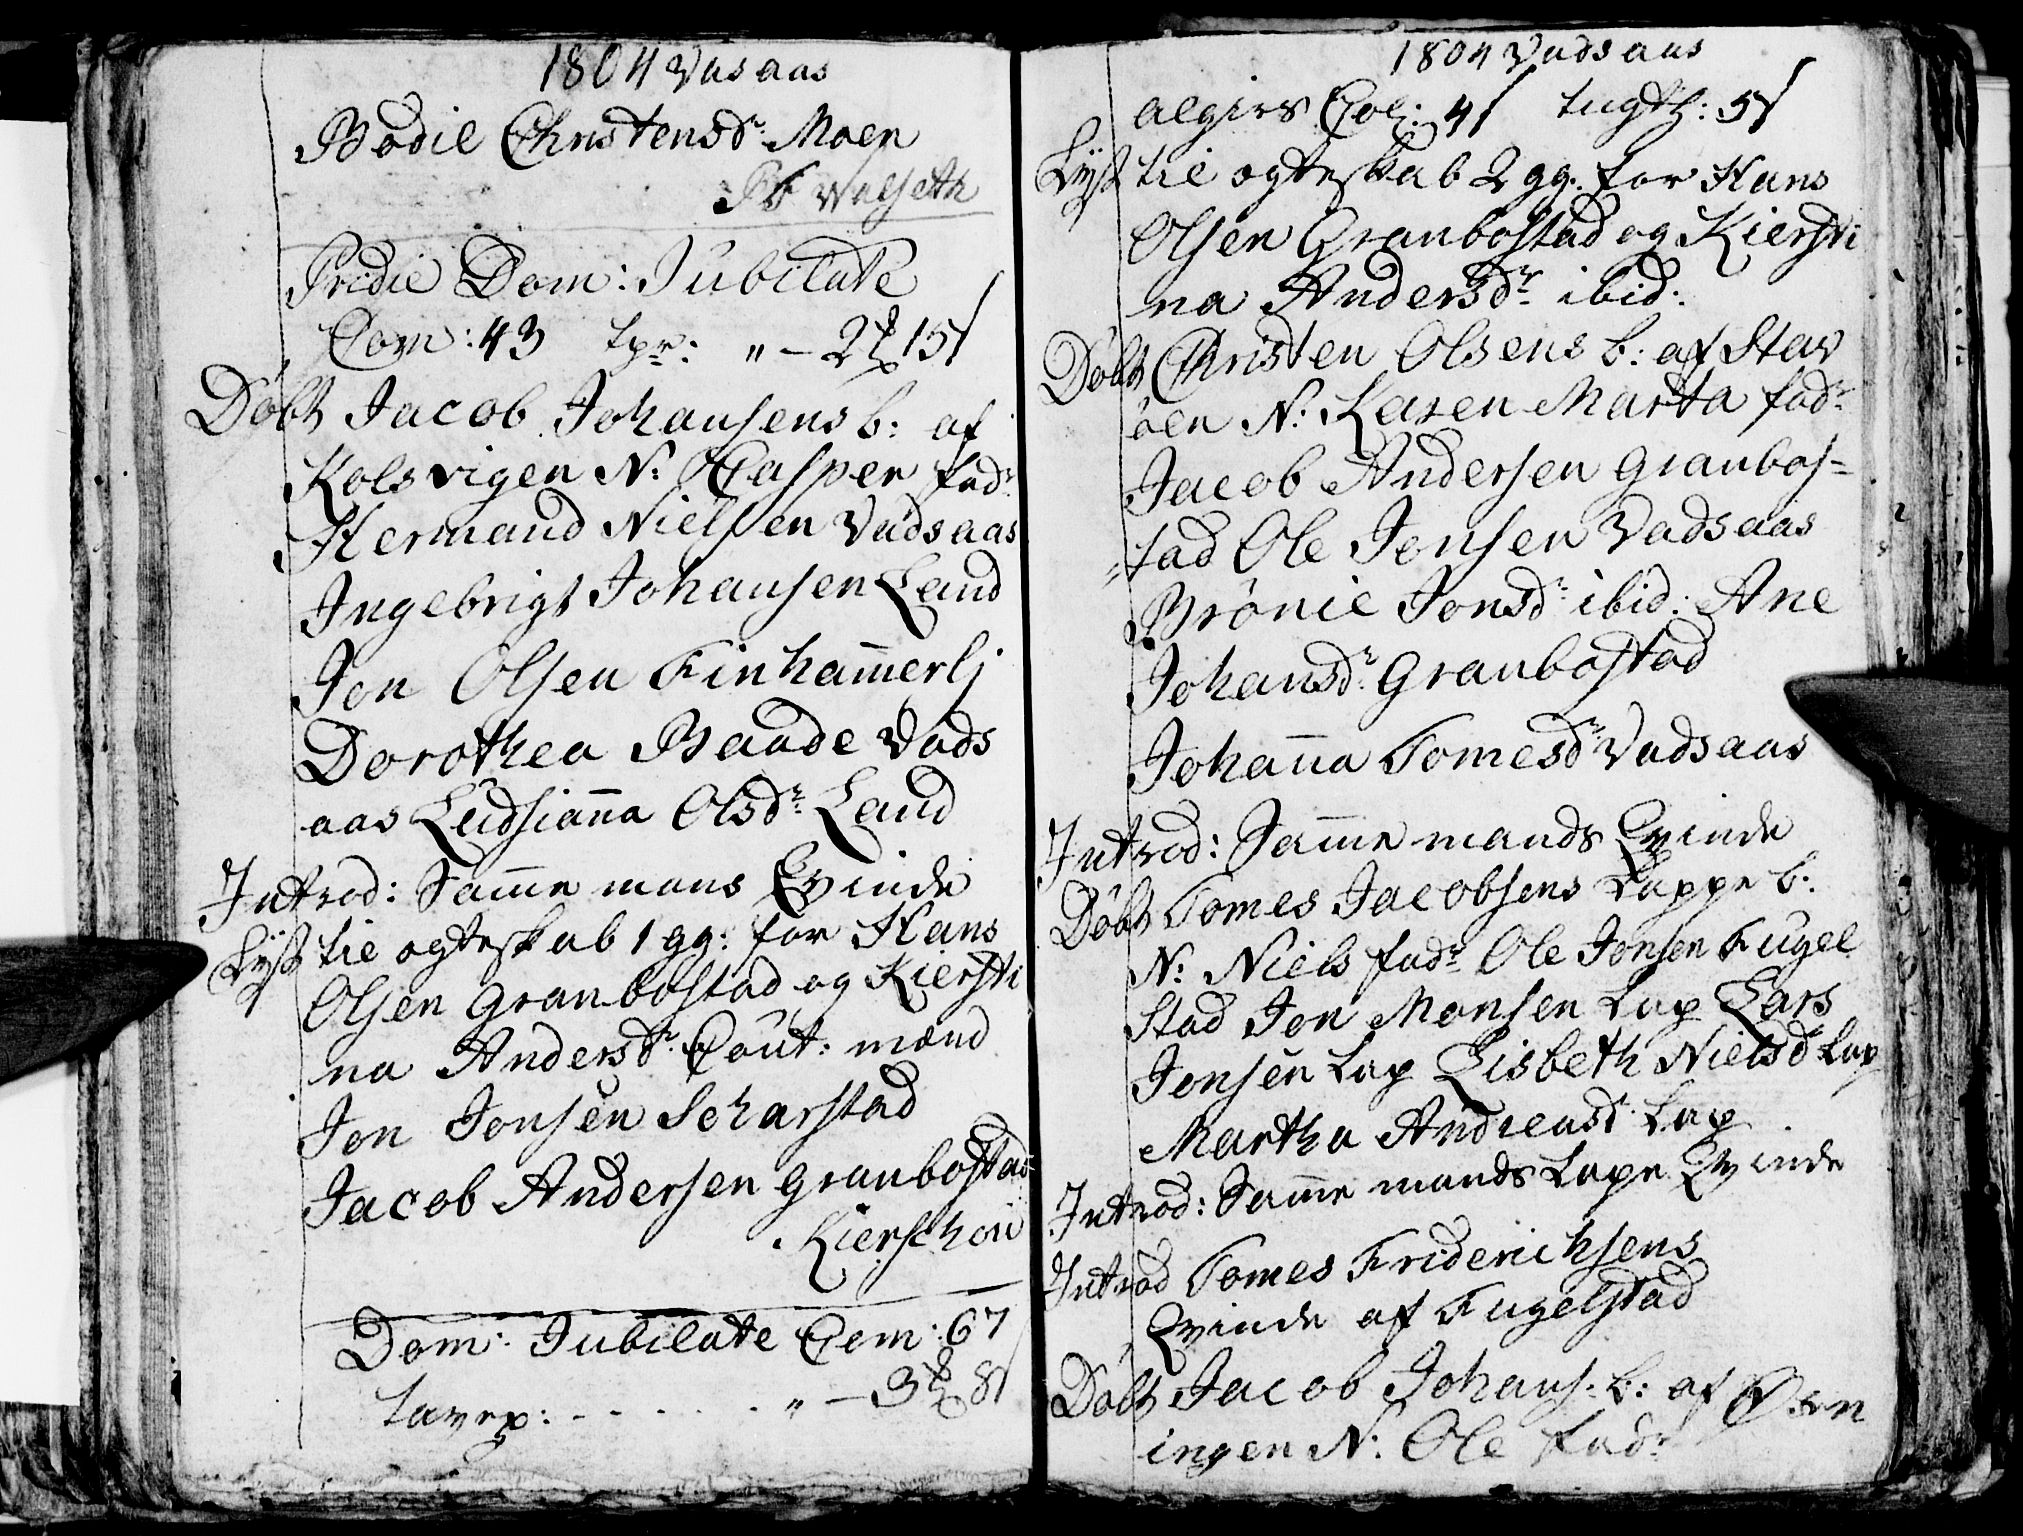 1804 Vasaas
Bodil Christensdr. Moen
Pb Valseth
Pridie Dom: Jubilate
Com: 43 Tpr: " – 2 15 s
Døbt Jacob Johansens b: af
Kolsvigen N: Casper fadr
Hermand Nielsen Vadsaas
Ingebrigt Johansen Land
Jon Olsen Finhammerlj
Dorothea Baade Vads
aas Ludsianna Olsdr. Land
Introd: Samme mans Qvinde
Lyst til ægteskab 1 gg: for Hans
Olsen Granbostad og Kiersti
na Andersdr. Caut: mænd
Jon Jonsen Scharstad
Jacob Andersen Granbostad
Kierschou
Dom: Jubilate Com: 67
Tavex: - - - - - " – 3 8 s
1804 Vadsaas
algiers Col: 4 s Tugth: 5 s
Lyst til ægteskab 2 gg. for Hans
Olsen Granbostad og Kiersti
na Andersdr. ibid:
Døbt Christen Olsens b: af Stav
øen N: Karen Marta fadr.
Jacob Andersen Granbos=
=tad Ole Jonsen Vadsaas
Brønil Jonsdr. ibid: Ane
Johansdr. Granbostad
Johanna Tomesdr Vadsaas
Introd: Samme mands Qvinde
Døbt Tomes Jacobsens Lappe b:
N: Niels fadr. Ole Jonsen Fugel
stad Jon Monsen Lap Lars
Jonsen Lap Lisbeth Nielsd Lap
Martha Andreasd. Lap
Introd: Samme mands Lape Qvinde
Introd Tomes Friderichsens
Qvinde af Fugelstad
Døbt Jacob Johans: b: af
ingen N: Ole fadr